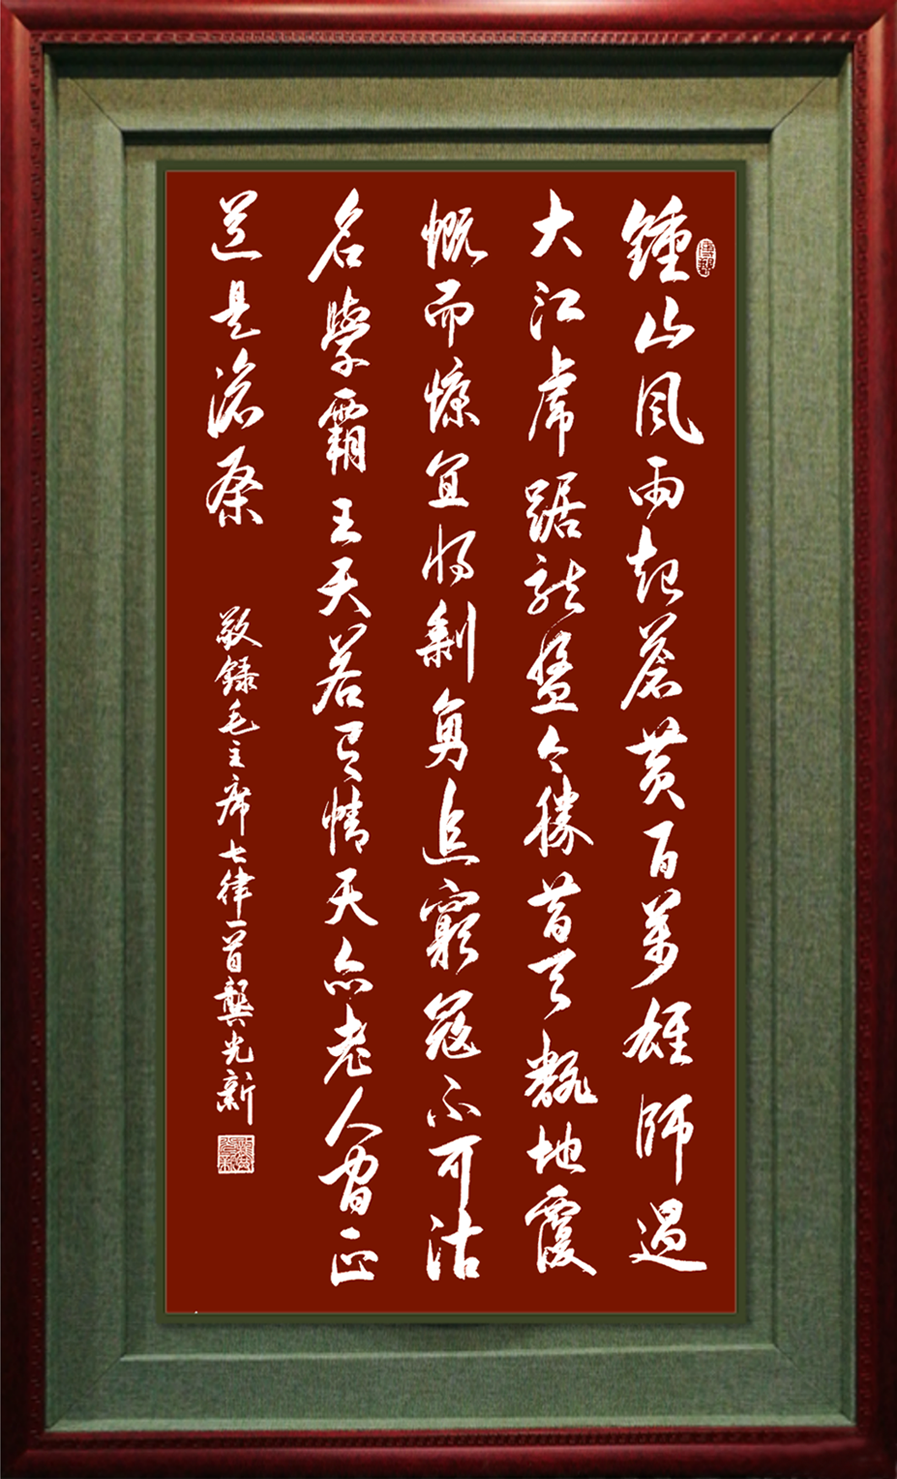 鍾山風雨起蒼黃百萬雄師過
大江虎踞龍盤今勝昔天飜地覆
慨而慷宜將剩勇追窮寇不可沽
名學霸王天若有情天亦老人間正
道是滄桑
敬錄毛主席七律一首龔光新